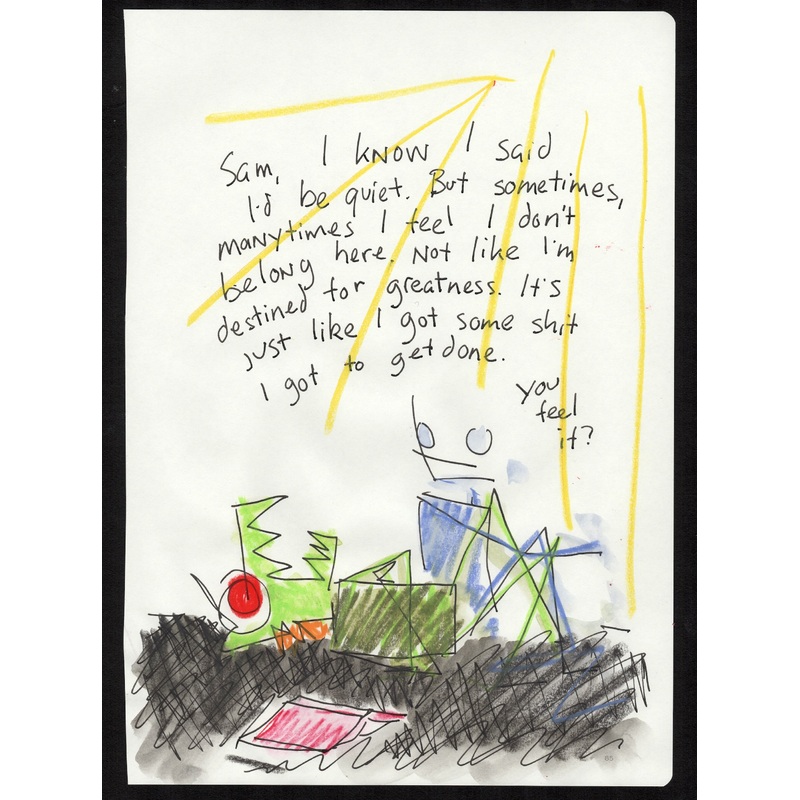 Sam, I know I said
I'd be quiet. But sometimes,
manytimes I feel I don't
belong here. Not like I'm
destined for greatness. It's
just like I got some shit
I got to get done.
you
feel
it?